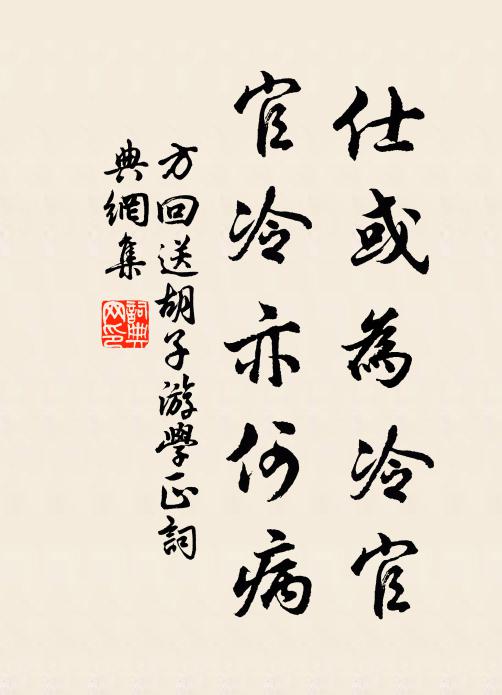 仕或為冷官
官冷亦何病
方回送胡子游學正詞
典網集
詞典
网印